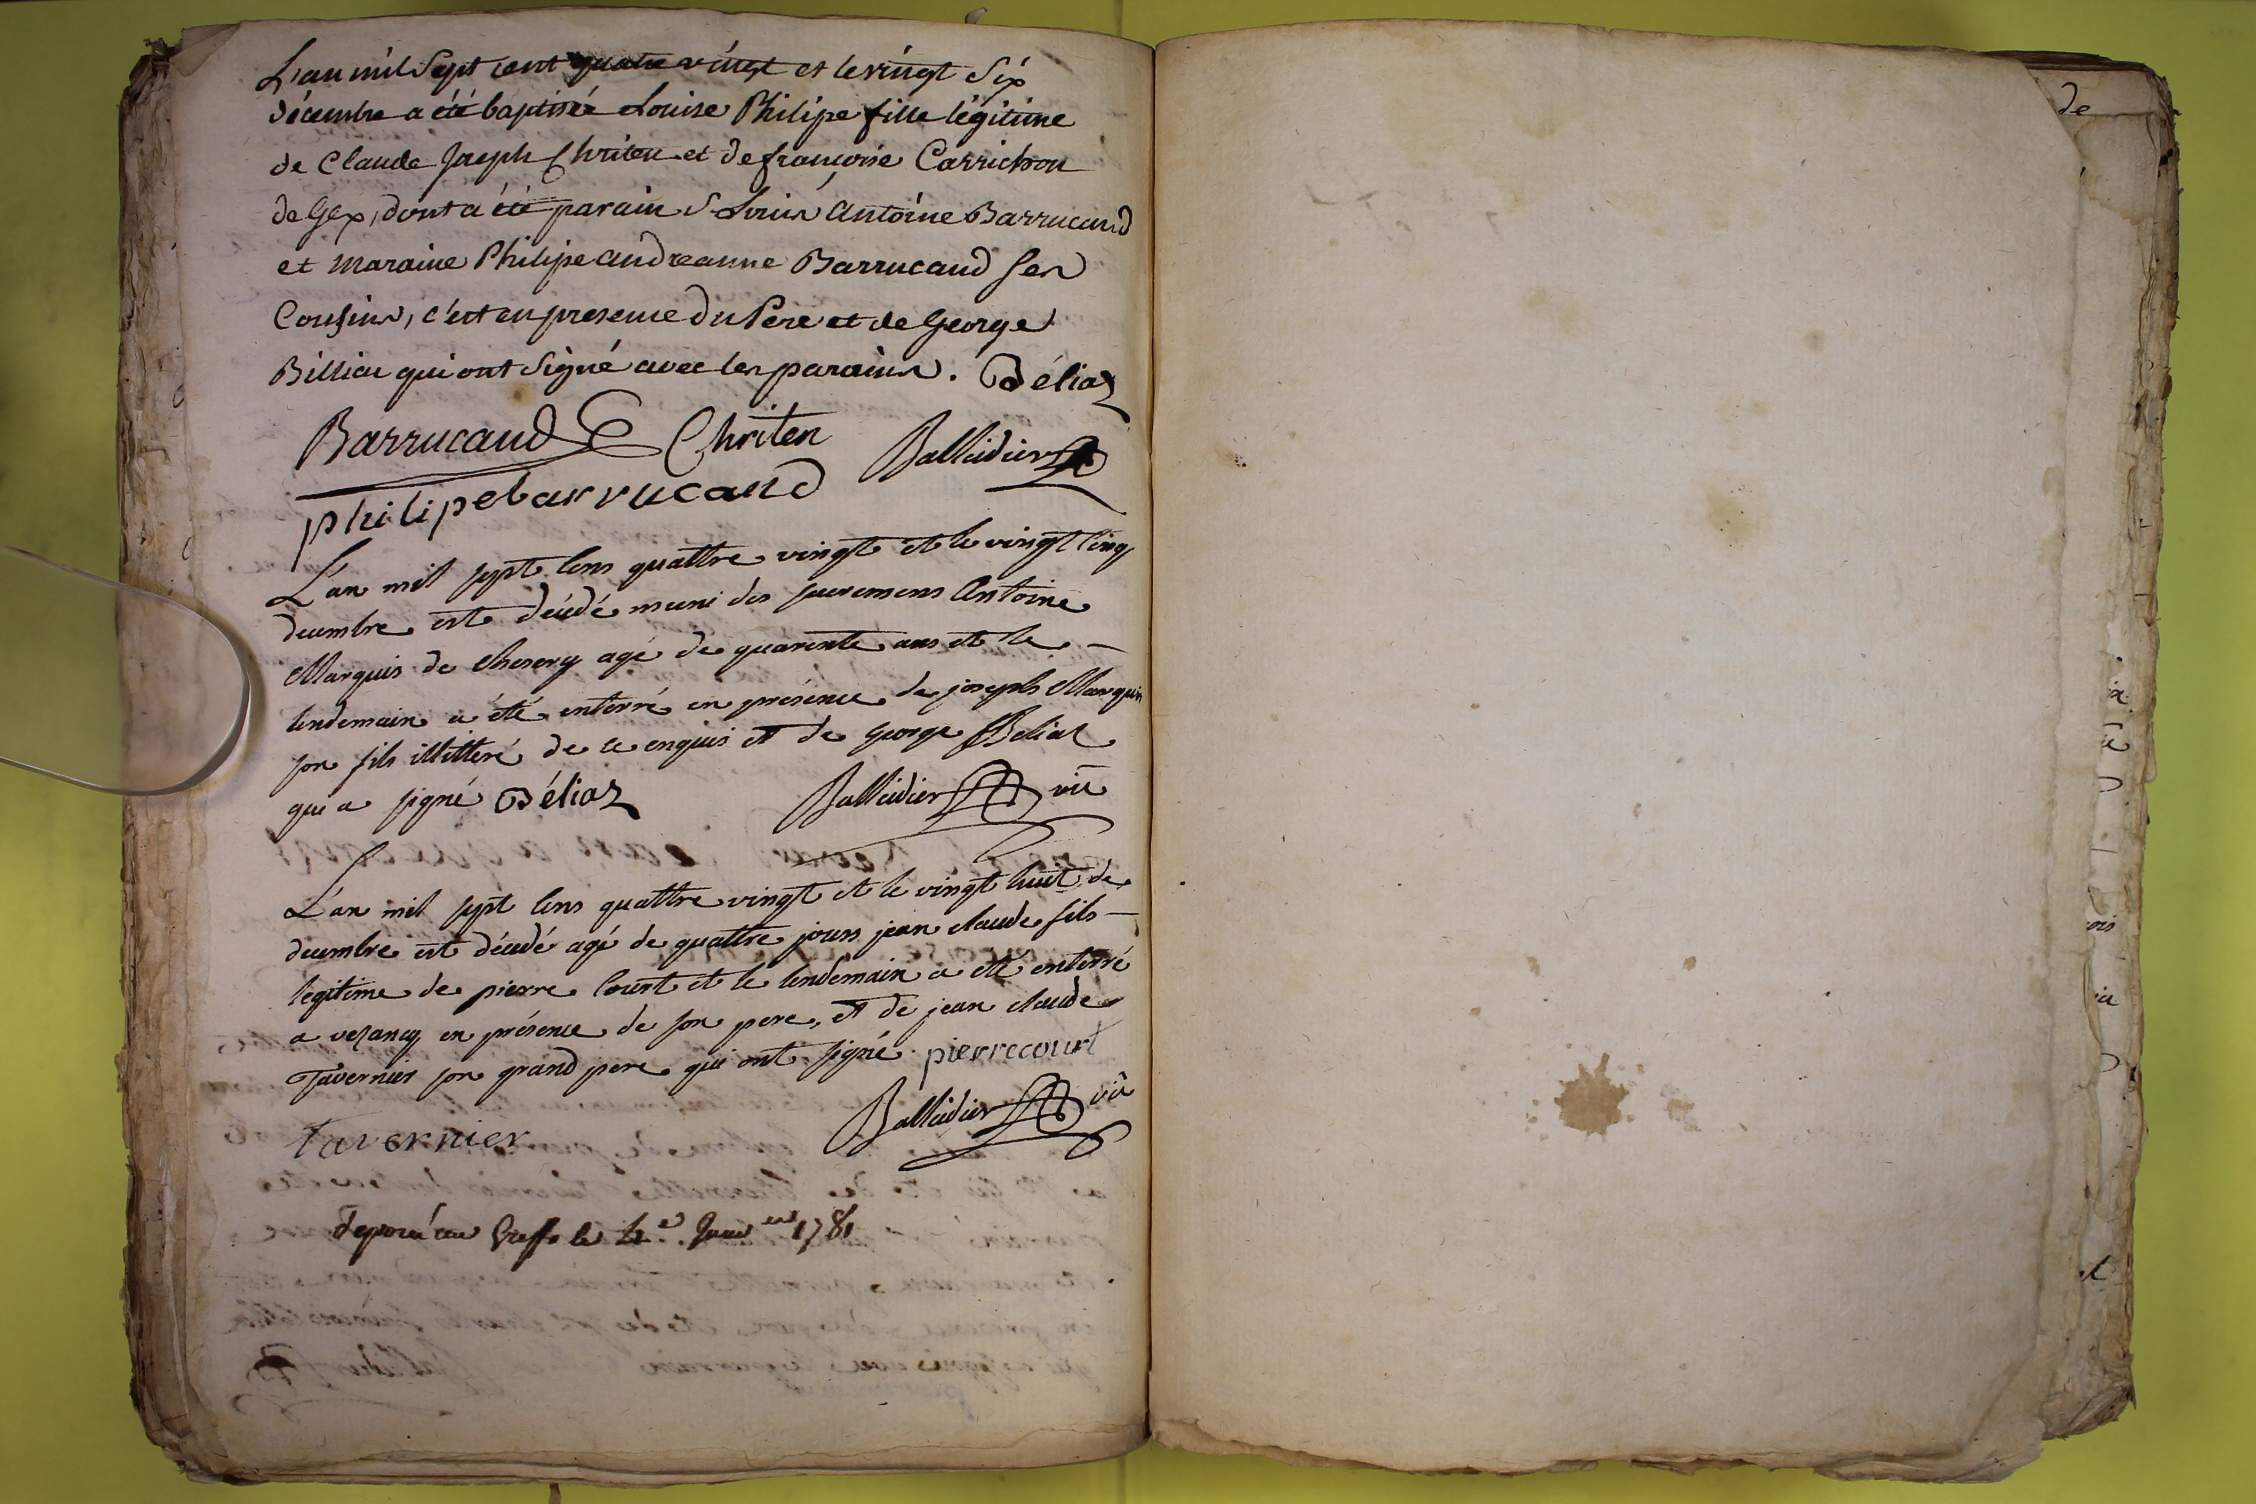 L'an mil Sept cent quatre vingt et le vingt Six
décembre a été baptisée Louise Philipe fille légitime
de Claude Joseph Chriten et de françoise Carrichon
de Gex, dont a été parain S Louis Antoine Barrucand
et maraine Philipe andreanne Barrucand ses
Cousins, c'est en presence du Pere et de George
Billiau qui ont Signé avec les parains. Béliaz
Barrucand Chriten Balleidier
philipe barrucand
L'an mil sept cens quattre vingt et le vingt cinq
decembre est décédé muni des sacremens Antoine
Marquis de chesery agé de quarente ans et le
lendemain a été enterré en présence de joseph Marquis
son fils illitteré de ce enquis et de george Béliaz
qui a signé Béliaz Balleidier vic
L'an mil sept cens quattre vingt et le vingt huit de
decembre est décédé agé de quattre jours jean claude fils
legitime de pierre Court et le lendemain a été enterré
a vezancy en présence de son pere, et de jean claude
Tavernier son grand pere qui ont signé. pierre court
tavernier Balleidier vic
déposé au Greffe le 1781
de